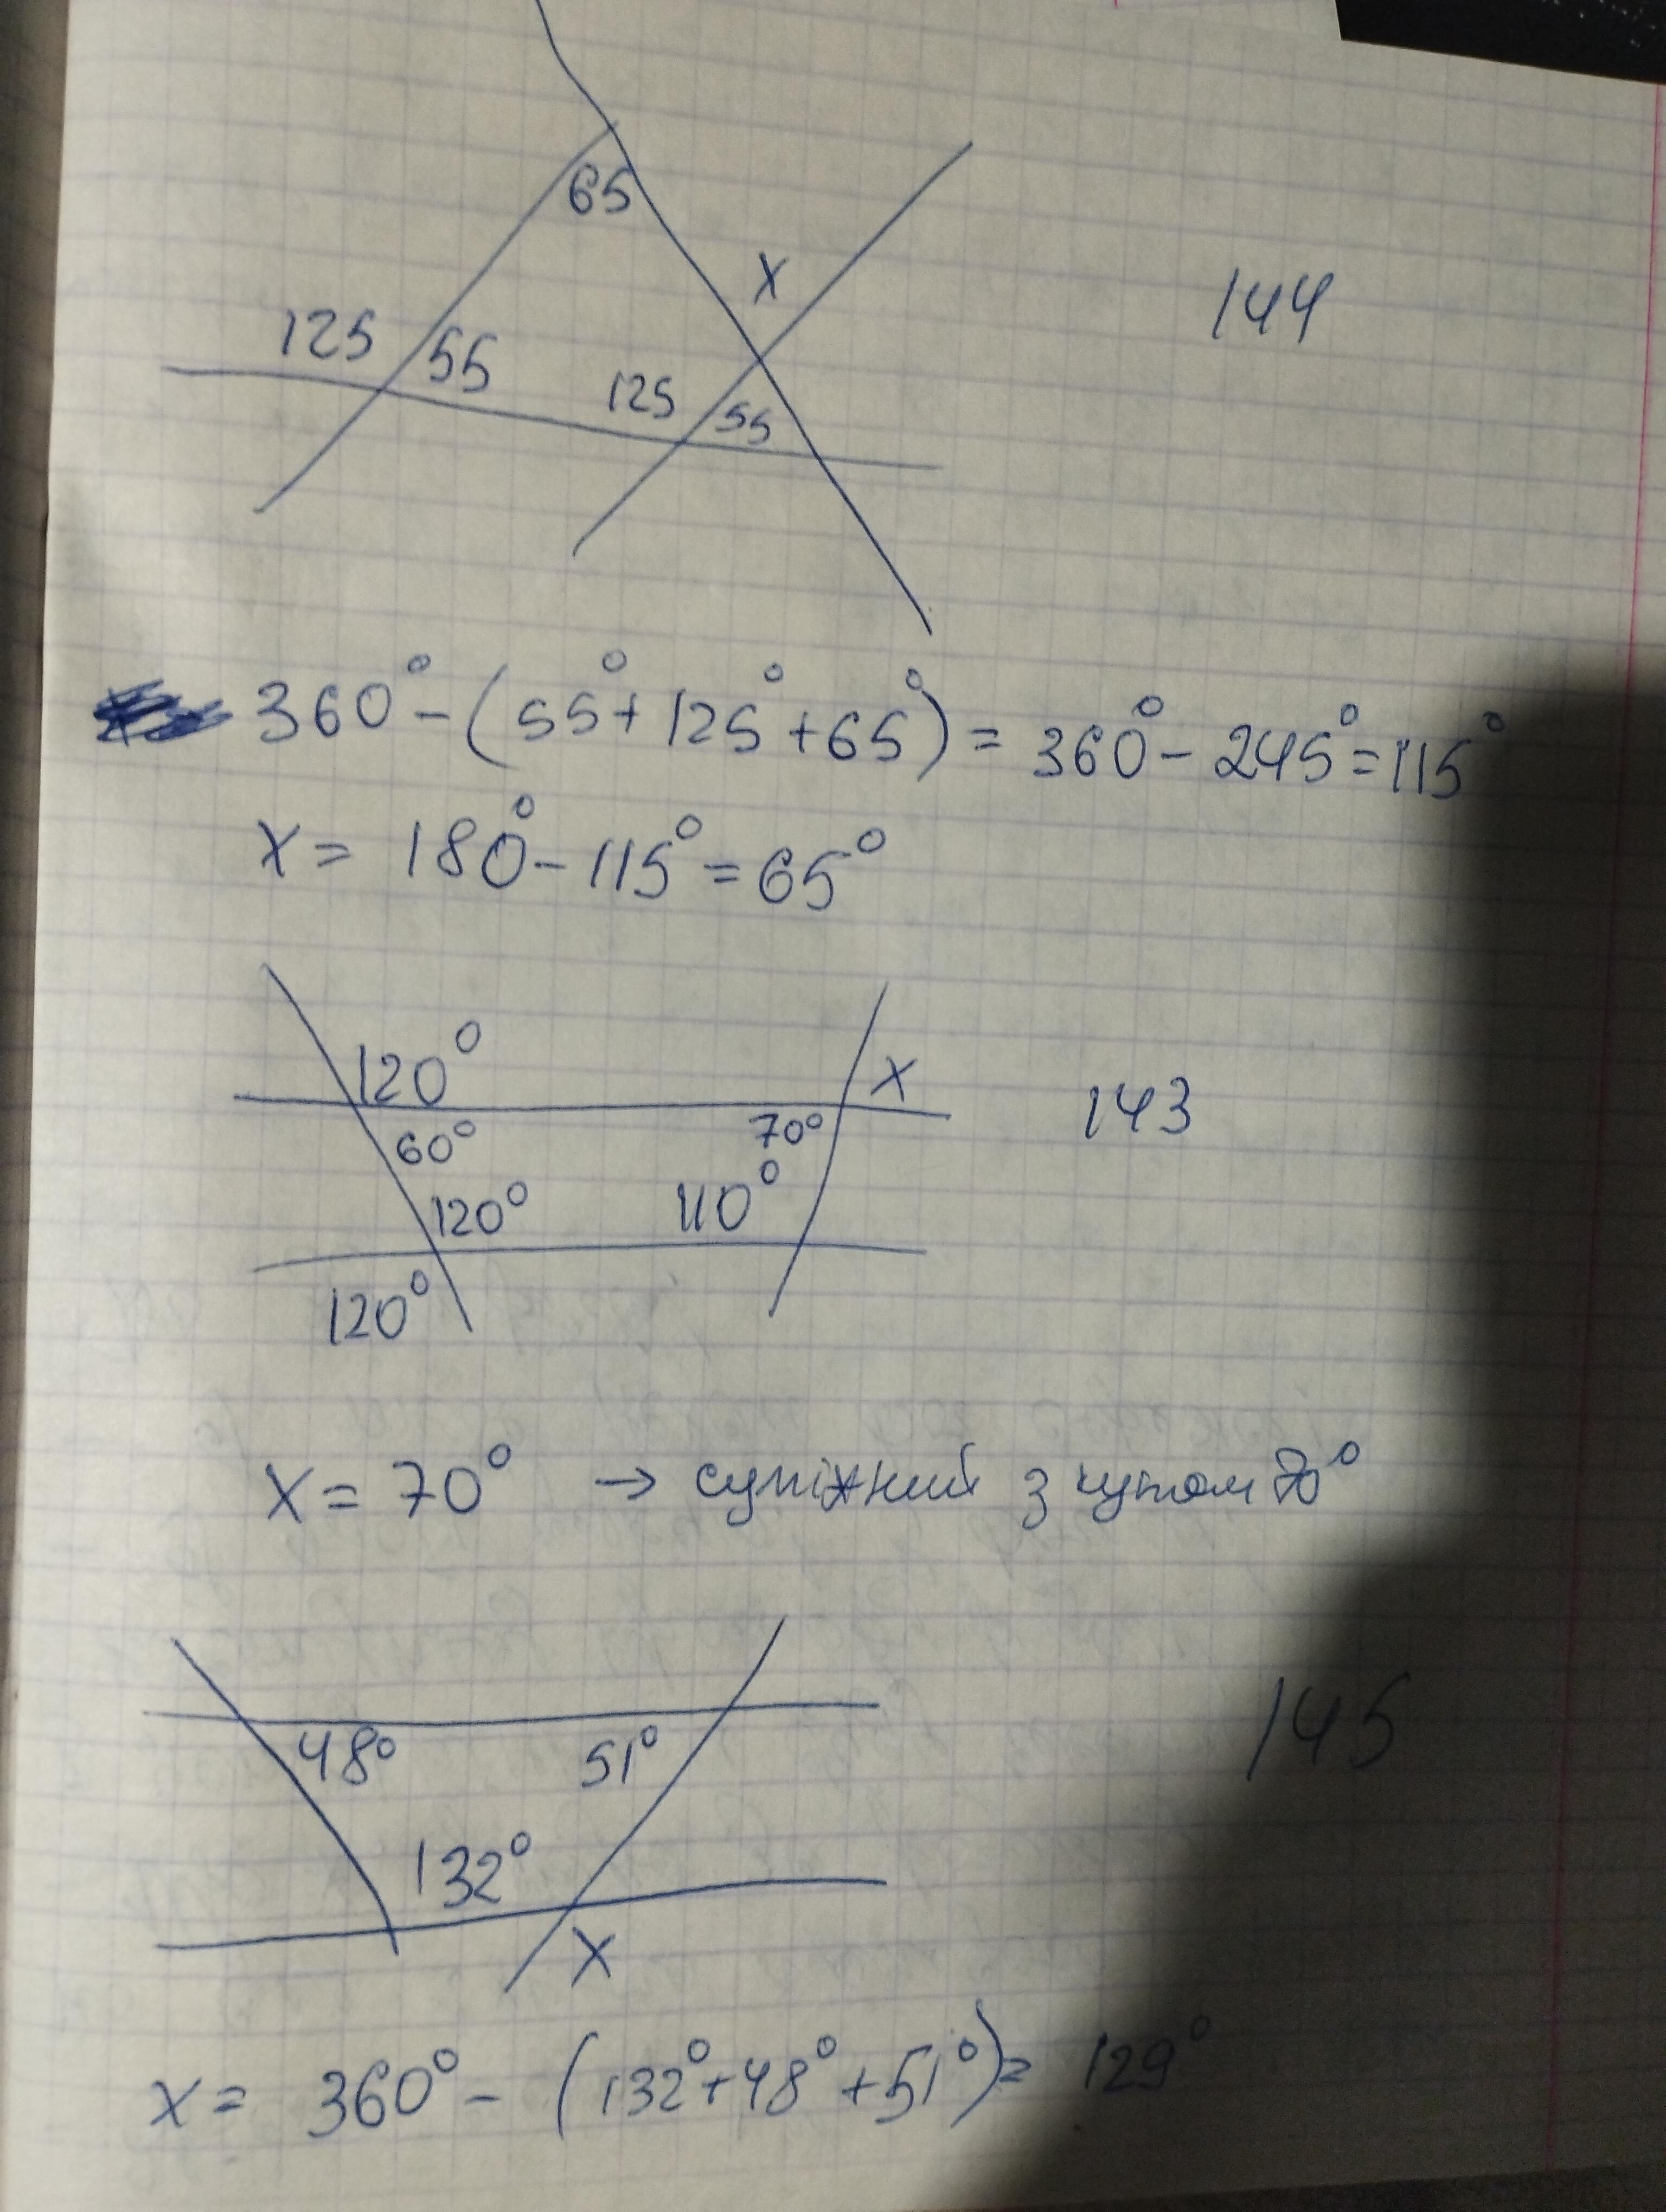 65
X
144
125 55
125 55
360° - (55° + 125° + 65°) = 360° - 245° = 115°
X = 180° - 115° = 65°
120° X
143
60° 70°
120° 110°
120°
X = 70° → суміжний з кутом 70°
48° 51°
145
132°
X
X = 360° - (132° + 48° + 51°) = 129°